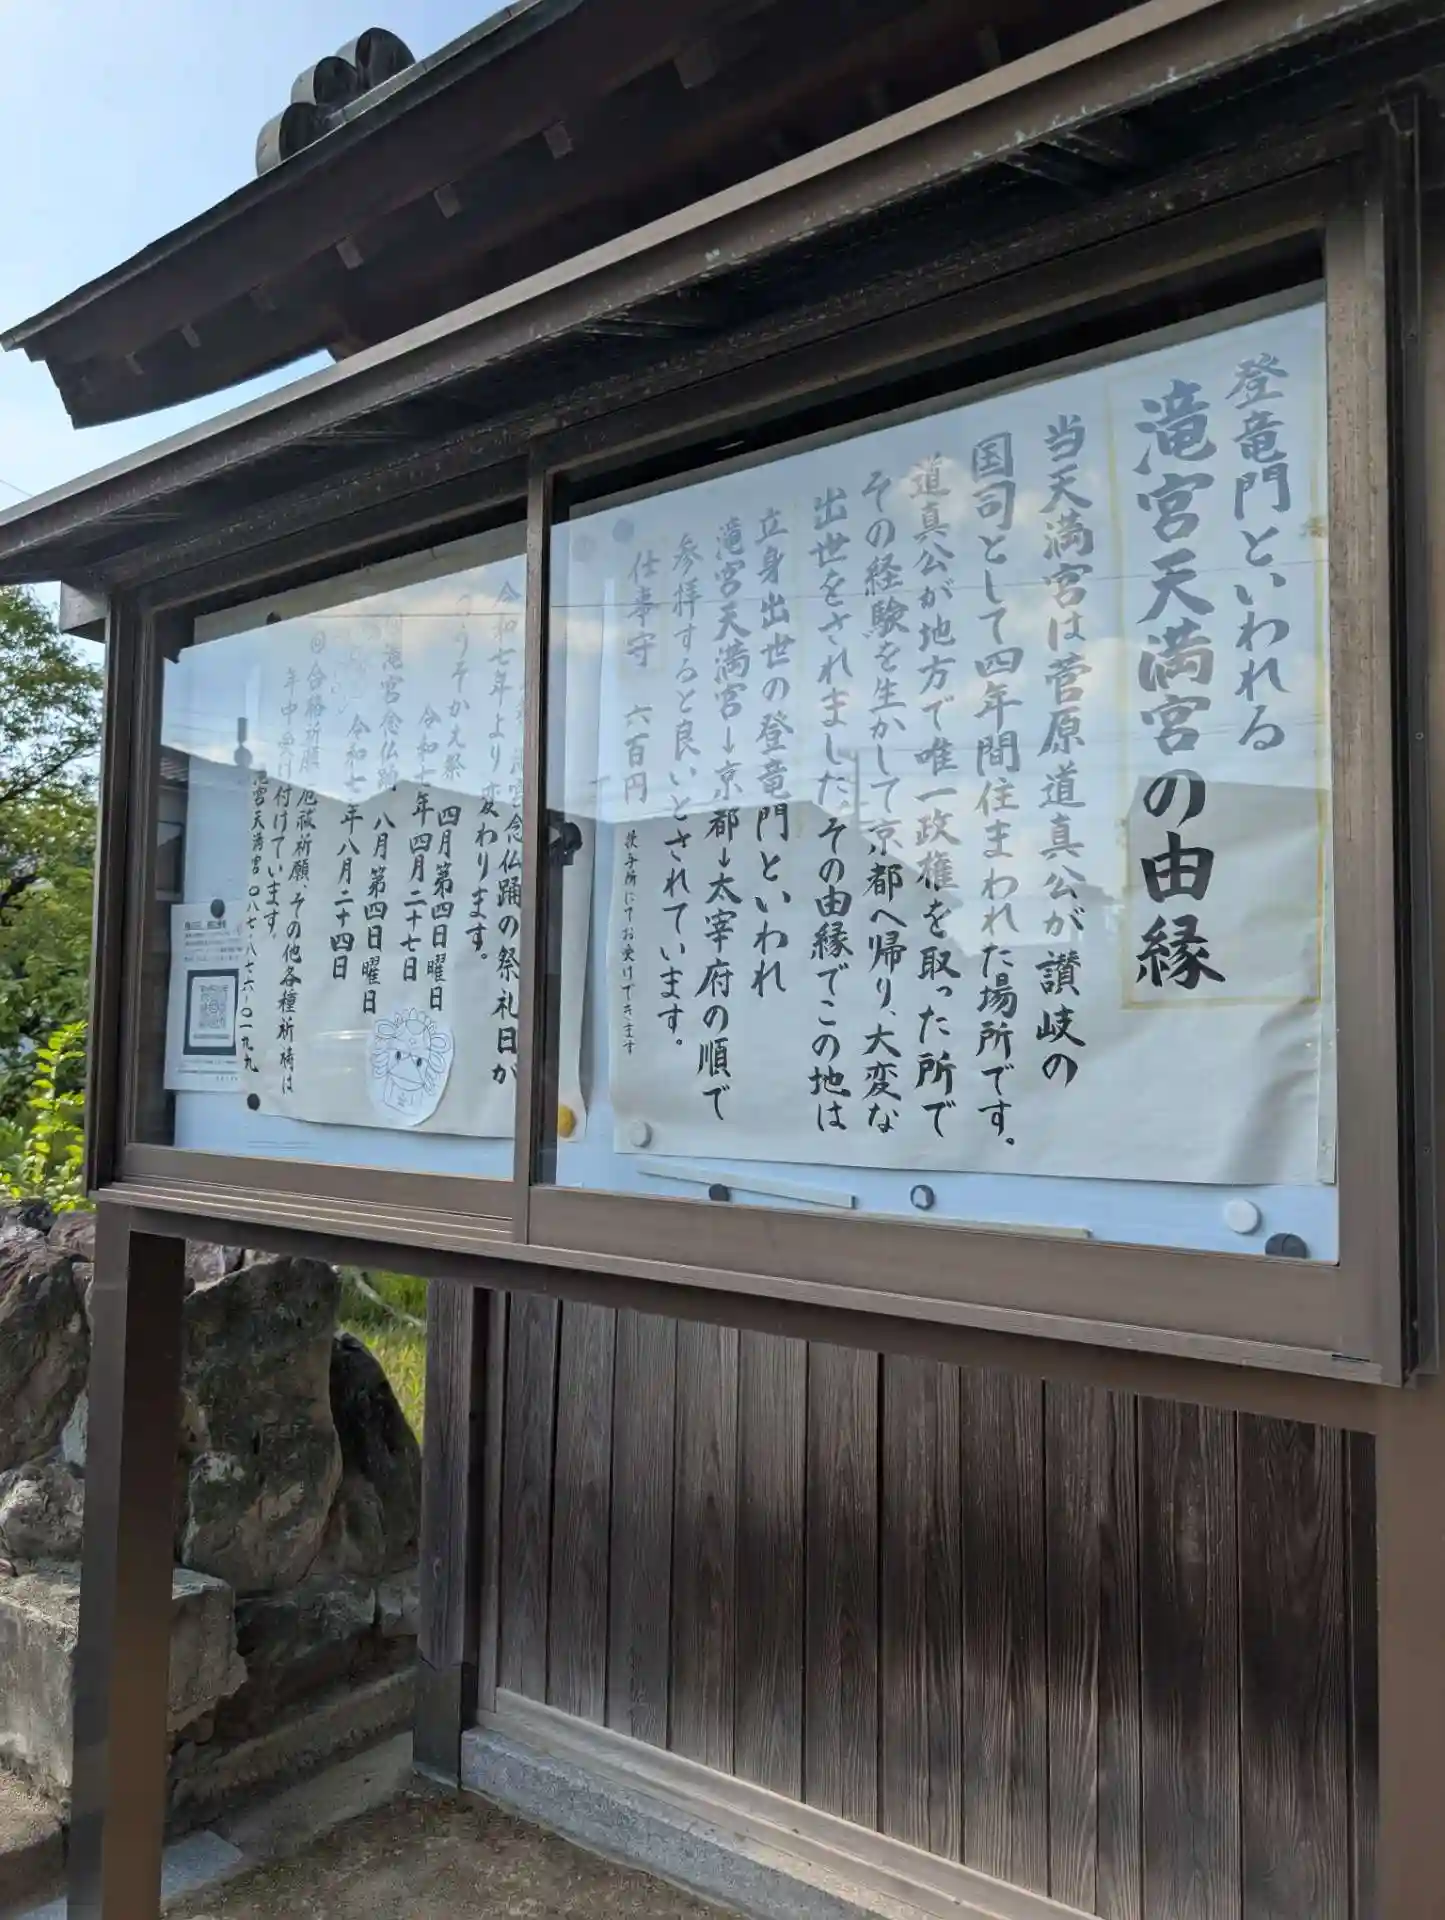 登竜門といわれる
滝宮天満宮の由縁
当天満宮は菅原道真公が讃岐の
国司として四年間住まわれた場所です。
道真公が地方で唯一政権を取った所で
その経験を生かして京都へ帰り、大変な
出世をされました。その由縁でこの地は
立身出世の登竜門といわれ
滝宮天満宮→京都→太宰府の順で
参拝すると良いとされています。
仕事守 六百円 授与所にてお受けできます
念仏踊の祭礼日が
令和七年より変わります。
うそかえ祭 四月第四日曜日
令和七年四月二十七日
滝宮念仏踊 八月第四日曜日
令和七年八月二十四日
◎合格祈願、厄祓祈願、その他各種祈祷は
年中受け付けています。
滝宮天満宮 〇八七-八七六-〇一九九